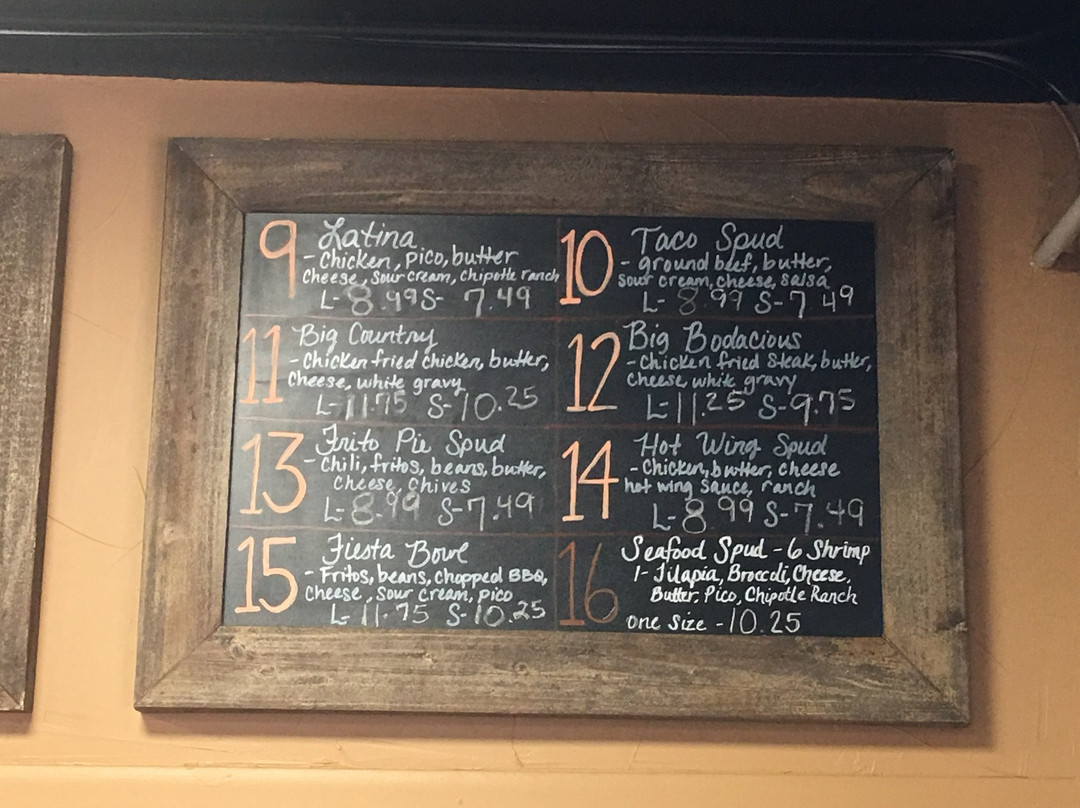 9 Latina
- Chicken, pico, butter
Cheese, sour cream, chipotle ranch
L- 8.99 S- 7.49
10 Taco Spud
- ground beef, butter,
sour cream, cheese, salsa
L- 8.99 S- 7.49
11 Big Country
- Chicken fried chicken, butter,
Cheese, white gravy
L- 11.75 S- 10.25
12 Big Bodacious
- Chicken fried steak, butter,
Cheese, white gravy
L- 11.25 S- 9.75
13 Frito Pie Spud
- Chili, fritos, beans, butter,
Cheese, Chives
L- 8.99 S- 7.49
14 Hot Wing Spud
- Chicken, butter, cheese
hot wing sauce, ranch
L- 8.99 S- 7.49
15 Fiesta Bowl
- Fritos, beans, chopped BBQ,
Cheese, sour cream, pico
L- 11.75 S- 10.25
16 Seafood Spud - 6 Shrimp
1- Tilapia, Broccoli, Cheese,
Butter, Pico, Chipotle Ranch
one size - 10.25